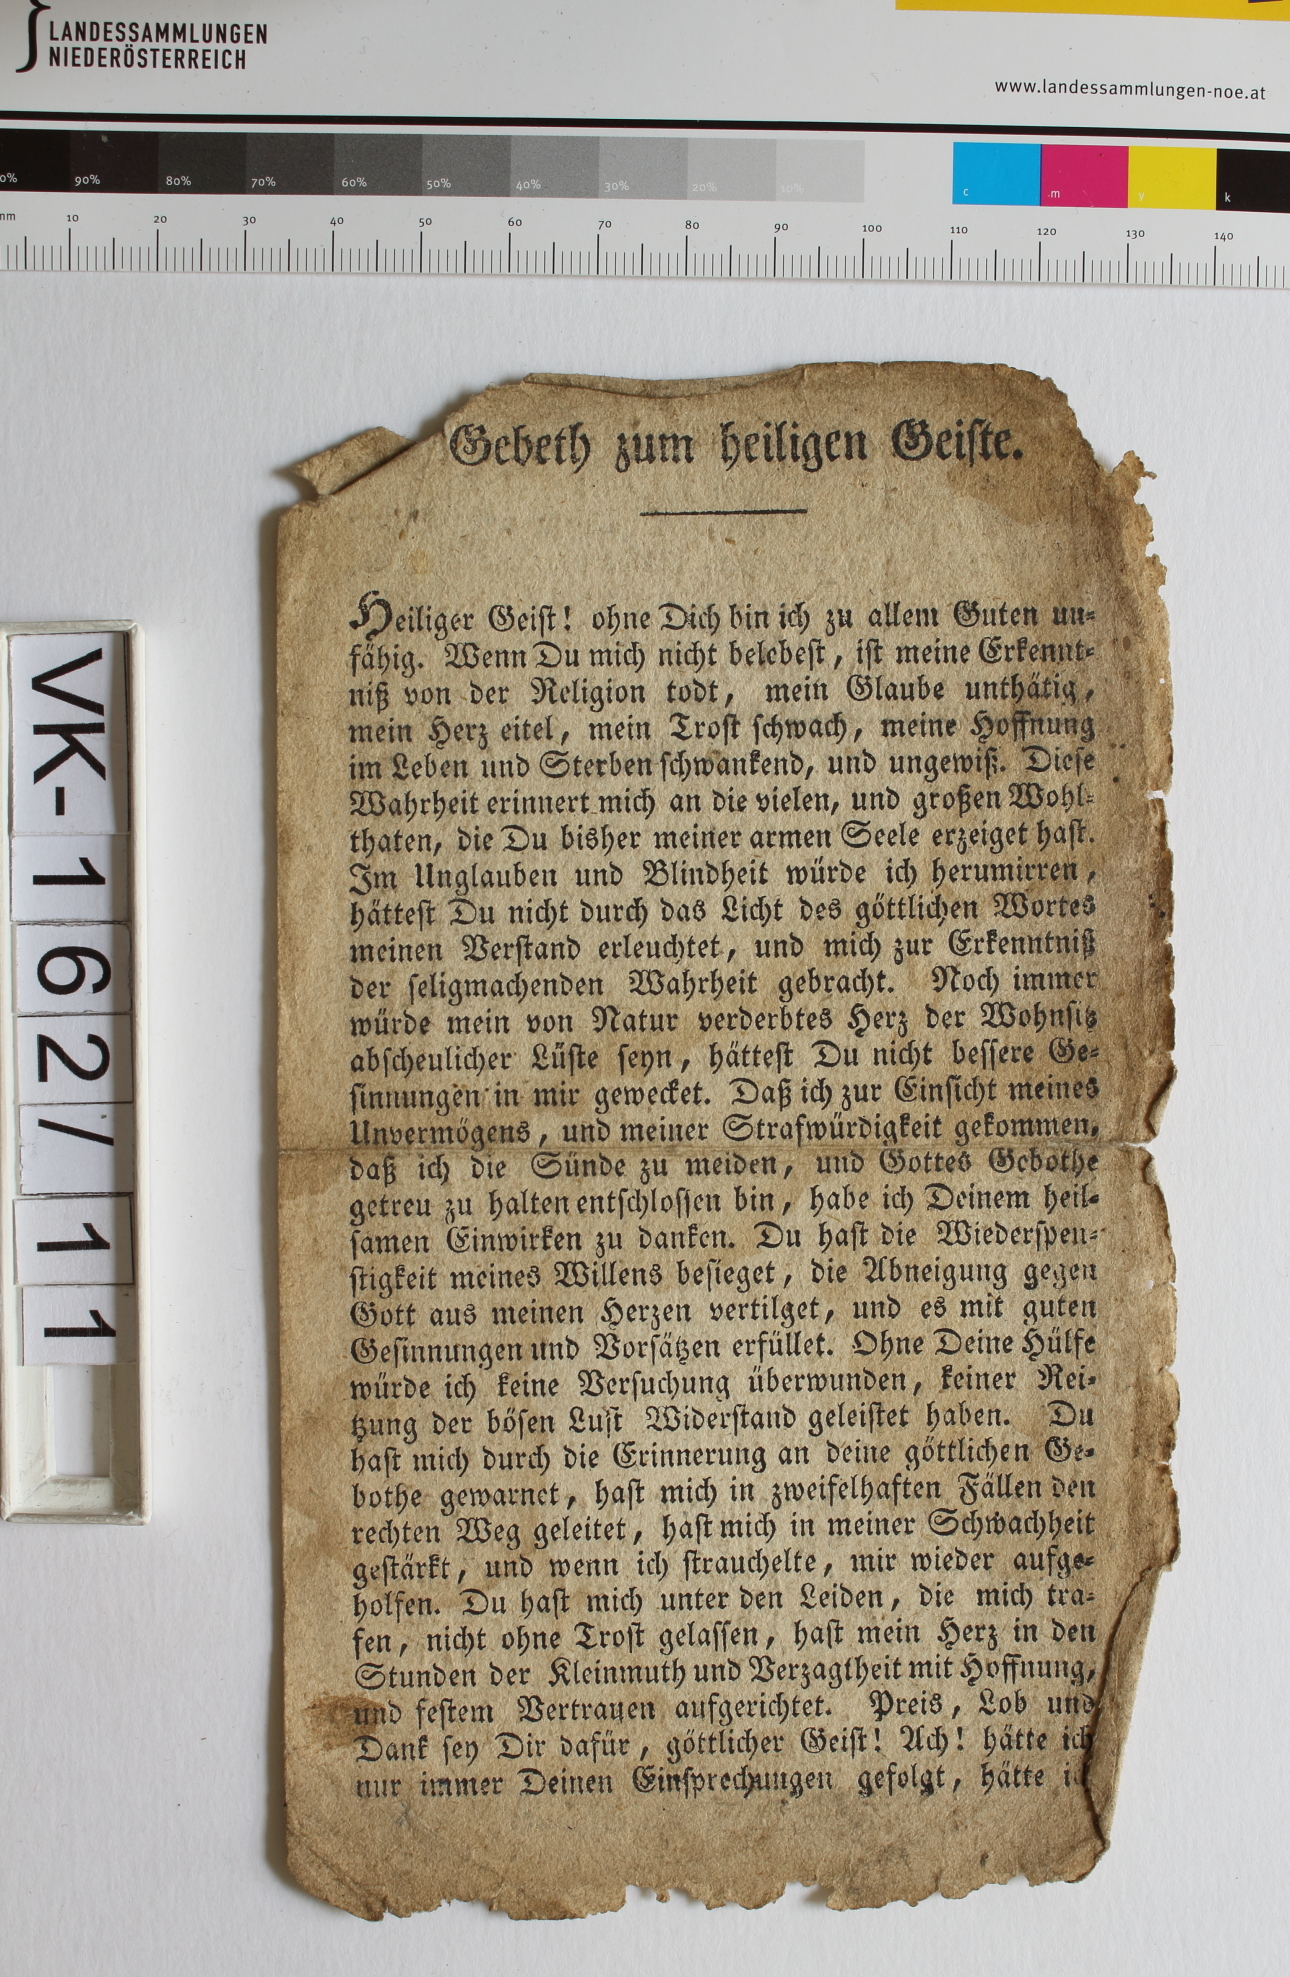 LANDESSAMMLUNGEN
NIEDERÖSTERREICH
www.landessammlungen-noe.at
0% 90% 80% 70% 60% 50% 40% 30% 20% 10% c m y k
10 20 30 40 50 60 70 80 90 100 110 120 130 140
VK-162/11
Gebeth zum heiligen Geiste.
Heiliger Geist! ohne Dich bin ich zu allem Guten un-
fähig. Wenn Du mich nicht belebest, ist meine Erkennt-
niß von der Religion todt, mein Glaube unthätig,
mein Herz eitel, mein Trost schwach, meine Hoffnung
im Leben und Sterben schwankend, und ungewiß. Diese
Wahrheit erinnert mich an die vielen, und großen Wohl-
thaten, die Du bisher meiner armen Seele erzeiget hast.
Im Unglauben und Blindheit würde ich herumirren,
hättest Du nicht durch das Licht des göttlichen Wortes
meinen Verstand erleuchtet, und mich zur Erkenntniß
der seligmachenden Wahrheit gebracht. Noch immer
würde mein von Natur verderbtes Herz der Wohnsitz
abscheulicher Lüste seyn, hättest Du nicht bessere Ge-
sinnungen in mir gewecket. Daß ich zur Einsicht meines
Unvermögens, und meiner Strafwürdigkeit gekommen,
daß ich die Sünde zu meiden, und Gottes Gebothe
getreu zu halten entschlossen bin, habe ich Deinem heil-
samen Einwirken zu danken. Du hast die Wiederspen-
stigkeit meines Willens besieget, die Abneigung gegen
Gott aus meinen Herzen vertilget, und es mit guten
Gesinnungen und Vorsätzen erfüllet. Ohne Deine Hülfe
würde ich keine Versuchung überwunden, keiner Rei-
tzung der bösen Lust Widerstand geleistet haben. Du
hast mich durch die Erinnerung an deine göttlichen Ge-
bothe gewarnet, hast mich in zweifelhaften Fällen den
rechten Weg geleitet, hast mich in meiner Schwachheit
gestärkt, und wenn ich strauchelte, mir wieder aufge-
holfen. Du hast mich unter den Leiden, die mich tra-
fen, nicht ohne Trost gelassen, hast mein Herz in den
Stunden der Kleinmuth und Verzagtheit mit Hoffnung,
und festem Vertrauen aufgerichtet. Preis, Lob und
Dank sey Dir dafür, göttlicher Geist! Ach! hätte ich
nur immer Deinen Einsprechungen gefolgt, hätte ich